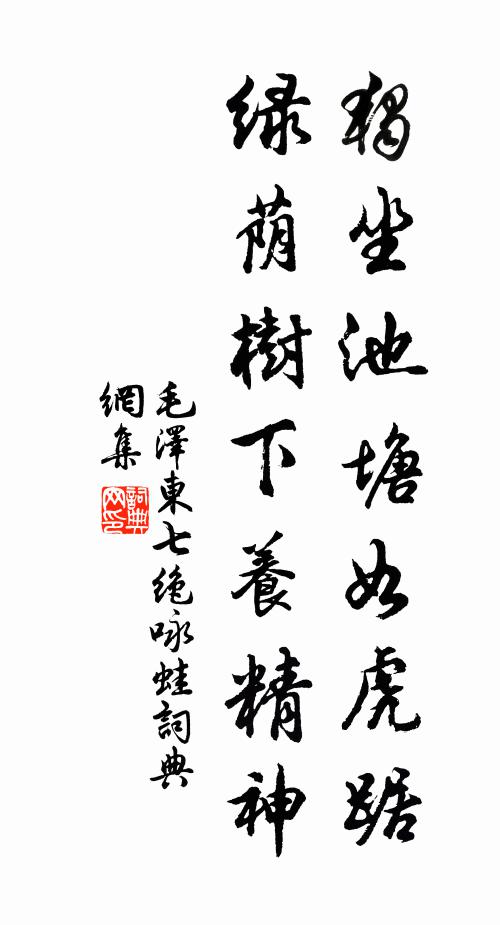 獨坐池塘如虎踞
绿荫樹下養精神
毛澤東七绝咏蛙詞典
網集
詞典网印